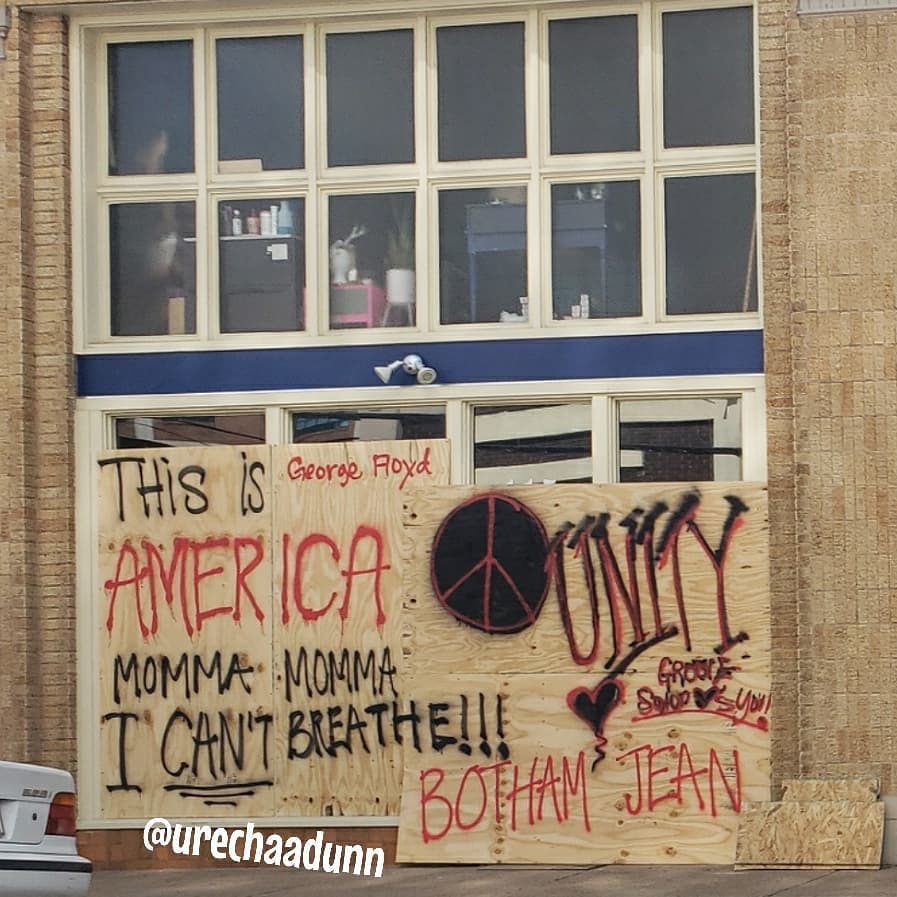 THIS IS
George Floyd
AMERICA
MOMMA MOMMA
I CAN'T BREATHE!!!
UNITY
Salon ♥'s you!
BOTHAM JEAN
@urechaadunn